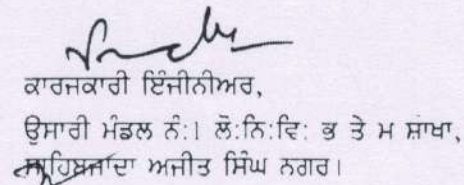 ਕਾਰਜਕਾਰੀ ਇੰਜੀਨੀਅਰ,
ਉਸਾਰੀ ਮੰਡਲ ਨੰ:1 ਲੋ:ਨਿ:ਵਿ: ਭ ਤੇ ਮ ਸ਼ਾਖਾ,
ਸਾਹਿਬਜਾਂਦਾ ਅਜੀਤ ਸਿੰਘ ਨਗਰ।